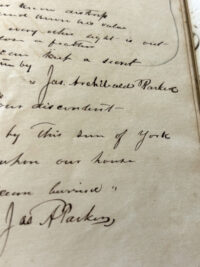 his value
every other light is out
a feather
keep a secret
by
Jas. Archibald Parker
our discontent
by this sun of York
upon our house
burried"
Jas A Parker,